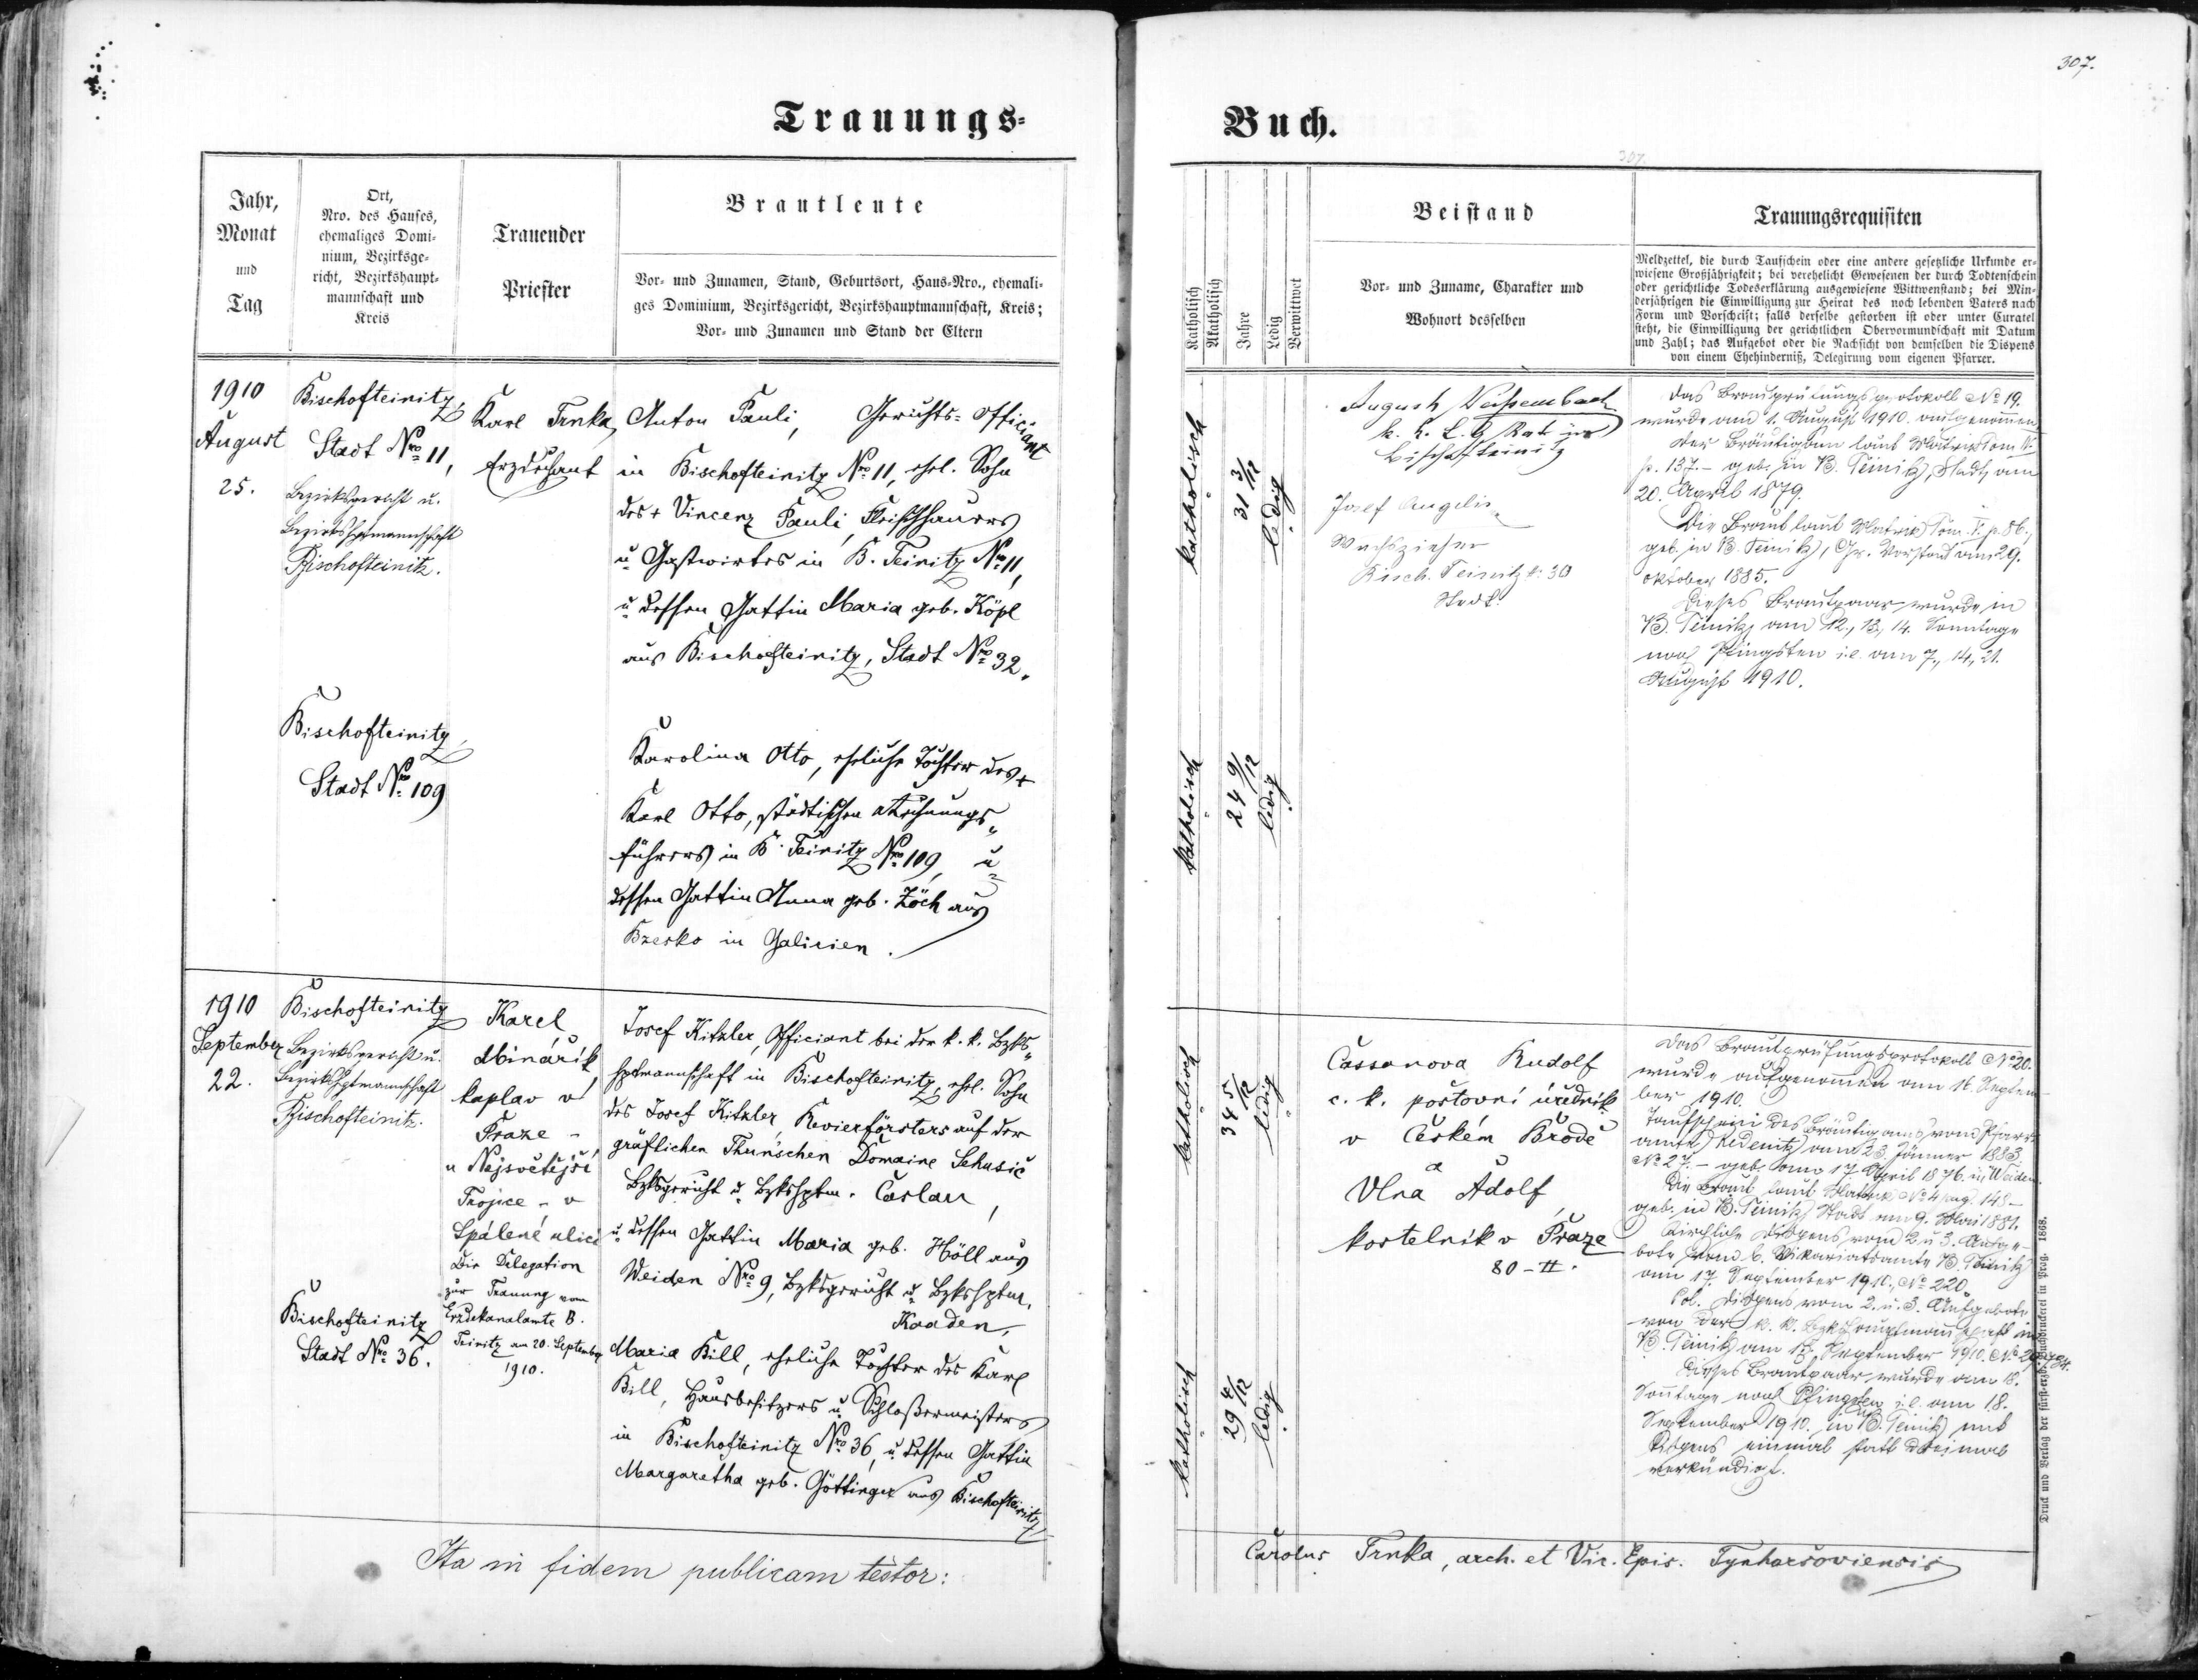 307.
Trauungs=
Buch.
307.
Jahr,
Monat
und
Tag
Ort,
Nro. des Hauses,
ehemaliges Domi-
nium, Bezirksge-
richt, Bezirkshaupt-
mannschaft und
Kreis
Trauender
Priester
Brautleute
Vor- und Zunamen, Stand, Geburtsort, Haus-Nro., ehemali-
ges Dominium, Bezirksgericht, Bezirkshauptmannschaft, Kreis;
Vor- und Zunamen und Stand der Eltern
Katholisch
Akatholisch
Jahre
Ledig
Verwittwet
Beistand
Vor- und Zuname, Charakter und
Wohnort desselben
Trauungsrequisiten
Meldzettel, die durch Taufschein oder eine andere gesetzliche Urkunde er-
wiesene Großjährigkeit; bei verehelicht Gewesenen der durch Todtenschein
oder gerichtliche Todeserklärung ausgewiesene Wittwenstand; bei Min-
derjährigen die Einwilligung zur Heirat des noch lebenden Vaters nach
Form und Vorschrift; falls derselbe gestorben ist oder unter Curatel
steht, die Einwilligung der gerichtlichen Obervormundschaft mit Datum
und Zahl; das Aufgebot oder die Nachsicht von demselben die Dispens
von einem Ehehinderniß, Delegirung vom eigenen Pfarrer.
1910
August
25.
Bischofteinitz,
Stadt Nro 11,
Bezirksgericht u.
Bezirkshptmannschaft
Bischofteinitz.
Karl Trnka,
Erzdechant
Anton Pauli, Gerichts=Officiant
in Bischofteinitz Nro 11, ehel. Sohn
des + Vincenz Pauli, Fleischhauers
u. Gastwirtes in B. Teinitz Nro 11,
u. dessen Gattin Maria geb. Köpl
aus Bischofteinitz, Stadt Nro 32.
katholisch
31 3/12
ledig
August Weissembach
k. k. L. G Rat in
Bischofteinitz
Josef Angelis
Wachszieher
Bisch. Teinitz N: 30
Stadt.
Das Brautprüfungsprotokoll No 19.
wurde am 1. August 1910. aufgenommen
Der Bräutigam laut Matrik Tom.
p. 137. – geb. in B. Teinitz, Stadt, am
20. April 1879.
Die Braut laut Matrik Tom. p. 86.,
geb. in B. Teinitz, Gr. Vorstadt am 29.
Oktober 1885.
Dieses Brautpaar wurde in
B. Teinitz am 12., 13., 14. Sonntage
nach Pfingsten i. e. am 7., 14., 21.
August 1910.
Bischofteinitz,
Stadt Nro 109
Karolina Otto, eheliche Tochter des +
Karl Otto, städtischen Rechnungs-
führers in B. Teinitz Nro 109, u.
dessen Gattin Anna geb. Zöch aus
Bzesko in Galizien.
katholisch
24 9/12
ledig
1910
September
22.
Bischofteinitz
Bezirksgericht u.
Bezirkshptmannschaft
Bischofteinitz.
Karel
Minárik,
kaplan v
Praze –
u Nejsvětější
Trojice – v
Spálené ulici
Die Delegation
zur Trauung vom
Erzdekanalamte B.
Teinitz am 20. September
1910.
Josef Kitzler, Officiant bei der k. k. Bzks-
hptmannschaft in Bischofteinitz, ehel. Sohn
des Josef Kitzler, Revierförsters auf der
gräflichen Thun'schen Domaine Sehusic
Bzksgericht u. Bzkshptm. Časlau,
u. dessen Gattin Maria geb. Höll aus
Weiden Nro 9, Bzksgericht u. Bzkshptm.
Kaaden,
katholisch
34 5/12
ledig
Cassanova Rudolf
c. k. poštovní úředník
v Českém Brodě
a
Vlna Adolf,
kostelník v Praze
80 – II.
Das Brautprüfungsprotokoll No 20.
wurde aufgenommen am 16. Septem-
ber 1910.
Taufschein des Bräutigams vom Pfarr-
amte Redenitz am 23. Jänner 1883.
No 27. – geb. am 17. April 1876. in Weiden.
Die Braut laut Matrik No 4 pag. 148 –
geb. in B. Teinitz, Stadt am 9. Mai 1881.
Kirchliche Dispens vom 2. u. 3. Aufge-
bote vom b. Vikariatsamte B. Teinitz
am 17. September 1910, No 220.
Pol. Dispens vom 2. u. 3. Aufgebote
von der k. k. Bzkshauptmannschaft in
B. Teinitz am September 1910. No
Dieses Brautpaar wurde am 18.
Sonntage nach Pfingsten i. e. am 18.
September 1910. in B. Teinitz mit
Dispens einmal statt dreimal
verkündigt.
Bischofteinitz
Stadt Nro 36.
Maria Bill, eheliche Tochter des Karl
Bill, Hausbesitzers u. Schloßermeisters
in Bischofteinitz Nro 36, u. dessen Gattin
Margaretha geb. Göttinger aus Bischofteinitz
katholisch
29 4/12
ledig
Ita in fidem publicam testor:
Carolus Trnka, arch. et Vic. Epis. Tynhoršoviensis
Druck und Verlag der fürsterzb. Buchdruckerei in Prag. 1868.